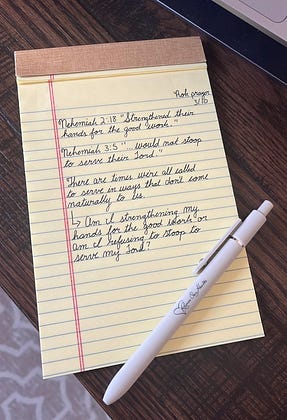 prayer
3/10
Nehemiah 2:18 "Strengthened their
hands for the good work."
Nehemiah 3:5 "... would not stoop
to serve their Lord."
"There are times we're all called
to serve in ways that don't come
naturally to us.
↳ Am I strengthening my
hands for the good work or
am I refusing to stoop to
serve my Lord?